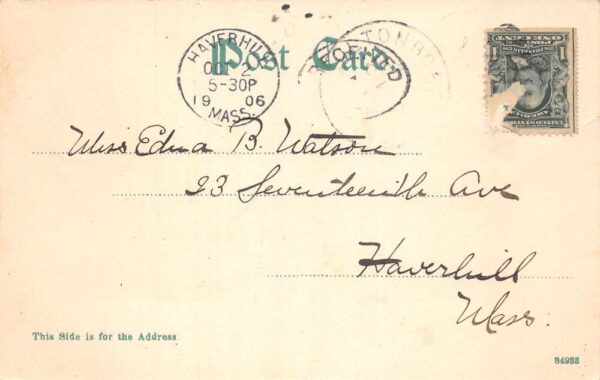 Post Card.
HAVERHILL
OCT 2
5-30P
1906
MASS.
ONE CENT
1
Miss Edna B. Watson
23 Seventeenth Ave
Haverhill
Mass.
This Side is for the Address
84933